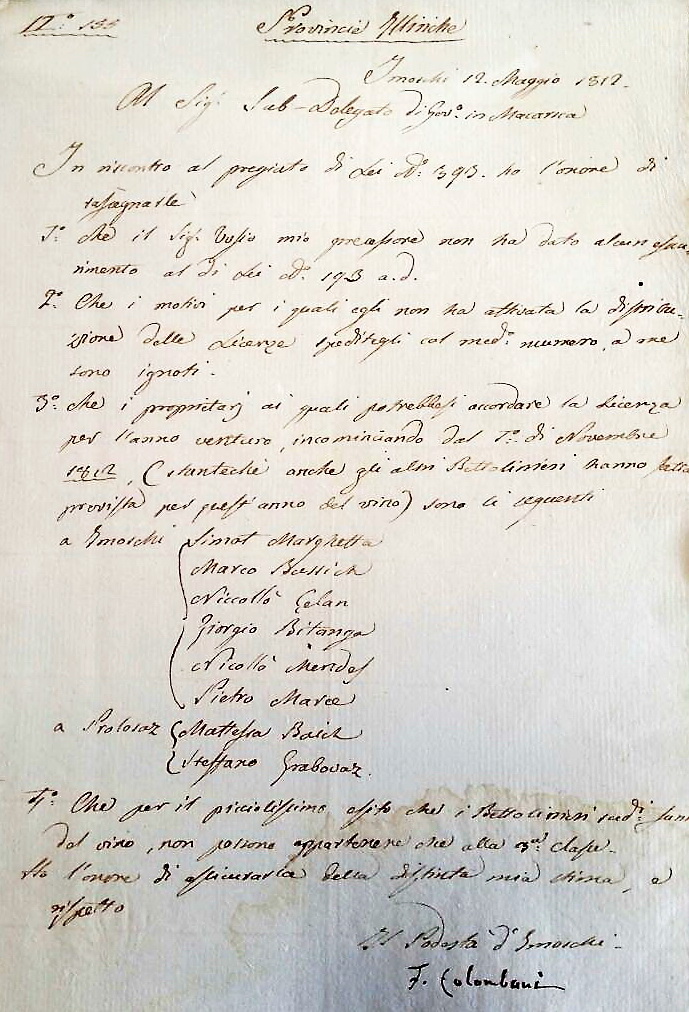 N.° 135
Provincie Illiriche
Imoschi 12. Maggio 1812.
Al Sig.r Sub-Delegato di Gov.o in Macarsca
In riscontro al pregiato di Lei N.° 393. ho l'onore di
rassegnarle
1.° Che il Sig.r Vusio mio precessore non ha dato alcun esau-
rimento al di Lei N.° 193 a.d.
2.° Che i motivi per i quali egli non ha attivata la distribu-
zione delle Licenze speditegli col med.o numero, a me
sono ignoti.
3.° che i proprietarj ai quali potrebbesi accordare la Licenza
per l'anno venturo, incominciando dal 1.° di Novembre
1812, (stanteché anche gli altri Bettolinieri hanno fatta
provista per quest'anno del vino) sono li seguenti
a Imoschi Simat Marghetta
Marco Bassich
Niccolò Gelan
Giorgio Bitanga
Nicollò Mendes
Pietro Marce
a Prolosaz Mattessa Baich
Steffano Grabovaz.
4.° Che per il picciolissimo esito che i Bettolinieri sud.i fann
del vino, non possono appartenere che alla 3.a classe.
Ho l'onore di assicurarla della distinta mia stima, e
rispetto
Il Podestà d'Imoschi.
F. Colombani